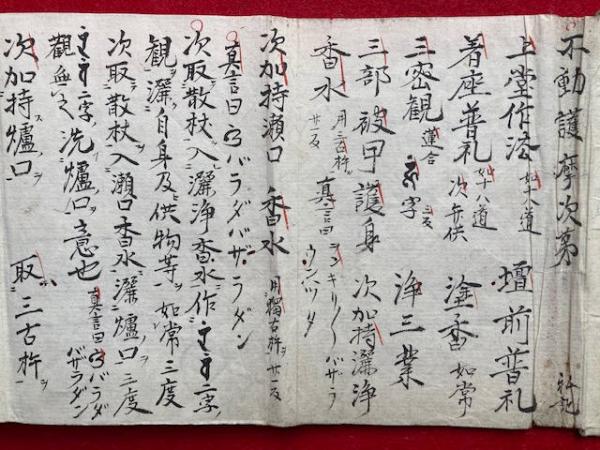 不動護摩次第 私記
上堂作法 如十八道 壇前普礼
着座普礼 如十八道 次弁供 塗香 如常
三密観 蓮合 字 三反 浄三業
三部被甲護身 次加持灑浄
香水 用三古杵 廿一反 真言曰 ヲンキリ〱バザラ ウンハッタ
次加持瀬口 香水 用獨古杵ヲ 廿一反
真言曰 バラダバザラダン
次取散杖ヲ入灑浄香水ニ作 二字
観灑自身及供物等ニ 如常三度
次取散杖入瀬口香水ニ灑爐口ニ三度
二字ヲ 観無所 洗爐口ヲ意也 真言曰 バラダ バザラダン
次加持爐口ヲ 取三古杵ヲ